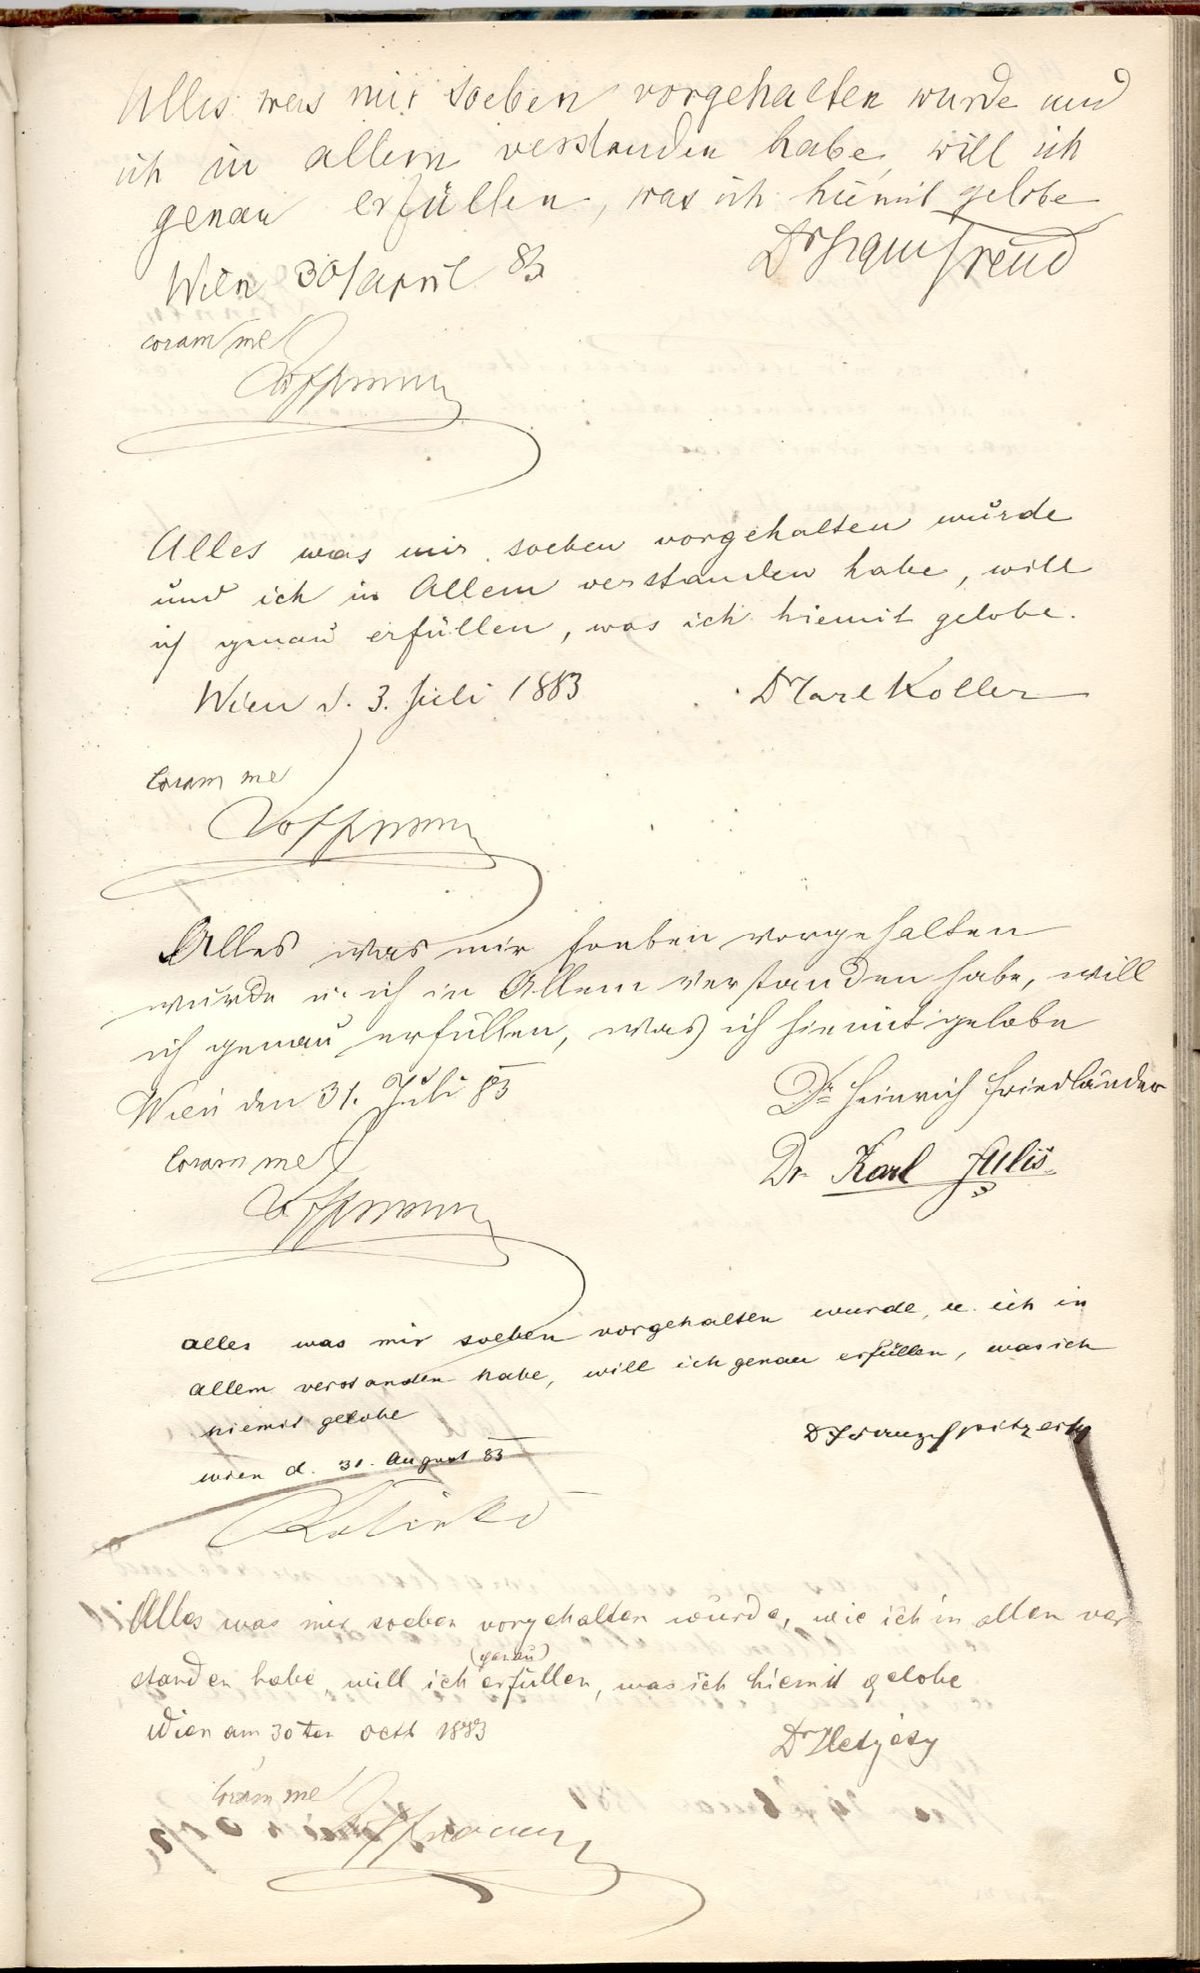 Alles was mir soeben vorgehalten wurde und
ich in allem verstanden habe will ich
genau erfüllen, was ich hiemit gelobe
Wien 30/April 83
Dr Sigm Freud
coram me
Hoffmann
Alles was mir soeben vorgehalten wurde
und ich in Allem verstanden habe, will
ich genau erfüllen, was ich hiemit gelobe.
Wien d. 3. Juli 1883
Dr Carl Koller
Coram me
Hoffmann
Alles was mir soeben vorgehalten
wurde u. ich in Allem verstanden habe, will
ich genau erfüllen, was ich hiemit gelobe
Wien den 31. Juli 83
Dr Heinrich Friedländer
Coram me
Dr. Karl
Hoffmann
alles was mir soeben vorgehalten wurde, u. ich in
allem verstanden habe, will ich genau erfüllen, was ich
hiemit gelobe
Dr Franz
wien d. 31. August 83
Alles was mir soeben vorgehalten wurde, wie ich in allen ver-
(genau)
standen habe, will ich erfüllen, was ich hiemit gelobe
Wien am 30ten 1883
Dr
Coram me
Hoffmann